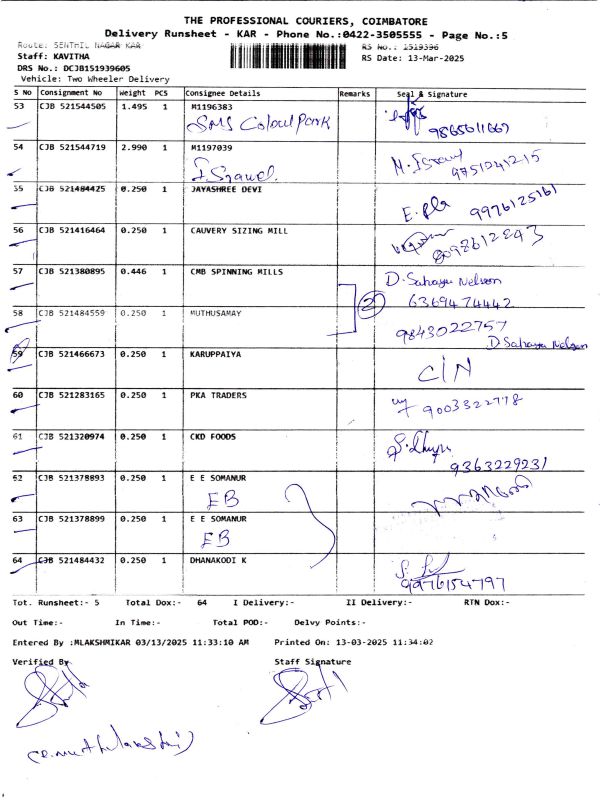 THE PROFESSIONAL COURIERS, COIMBATORE
Delivery Runsheet - KAR - Phone No.:0422-3505555 - Page No.:5
Route: SENTHIL NAGAR KAR RS No.: 1519396
Staff: KAVITHA RS Date: 13-Mar-2025
DRS No.: DCJB151939605
Vehicle: Two Wheeler Delivery
S No Consignment No Weight PCS Consignee Details Remarks Seal & Signature
53 CJB 521544505 1.495 1 M1196383
SMS Colour Park 9865611667
54 CJB 521544719 2.990 1 M1197039
I. Srauel N. Israuel 9751041215
55 CJB 521484425 0.250 1 JAYASHREE DEVI
9976125161
56 CJB 521416464 0.250 1 CAUVERY SIZING MILL
8098612843
57 CJB 521380895 0.446 1 CMB SPINNING MILLS D. Sahaya Nelson
2 6369474442
58 CJB 521484559 0.250 1 MUTHUSAMAY
9843022757
D Sahaya Nelson
59 CJB 521466673 0.250 1 KARUPPAIYA
C/N
60 CJB 521283165 0.250 1 PKA TRADERS
9003322778
61 CJB 521320974 0.250 1 CKD FOODS
9363229231
62 CJB 521378893 0.250 1 E E SOMANUR
EB
63 CJB 521378899 0.250 1 E E SOMANUR
EB
64 CJB 521484432 0.250 1 DHANAKODI K
9976154797
Tot. Runsheet:- 5 Total Dox:- 64 I Delivery:- II Delivery:- RTN Dox:-
Out Time:- In Time:- Total POD:- Delvy Points:-
Entered By :MLAKSHMIKAR 03/13/2025 11:33:10 AM Printed On: 13-03-2025 11:34:02
Verified By Staff Signature